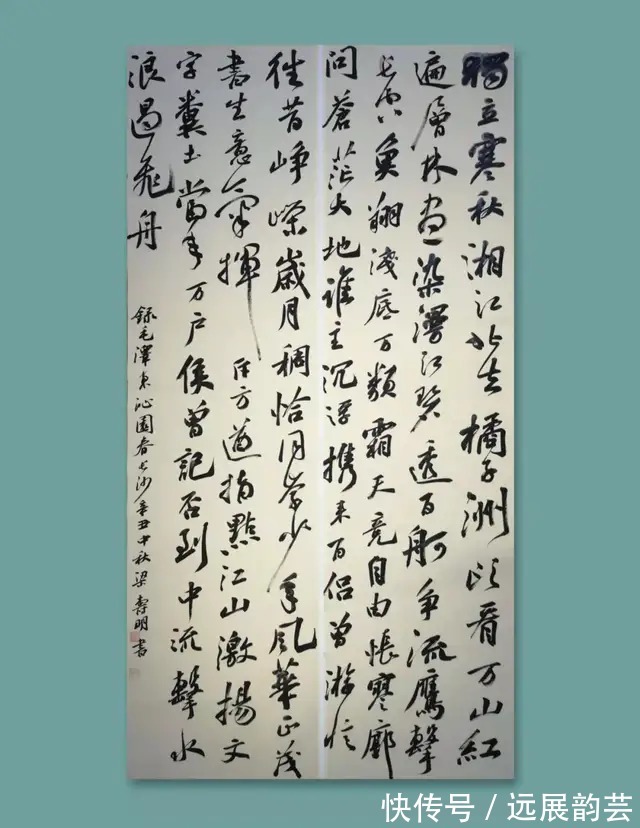 獨立寒秋湘江北去橘子洲頭看万山紅
遍層林盡染漫江碧透百舸爭流鷹擊
長空魚翔淺底万類霜天竞自由悵寥廓
問蒼茫大地誰主沉浮携来百侣曾游憶
往昔崢嶸歲月稠恰同學少年風華正茂
書生意氣揮斥方遒指點江山激揚文
字糞土當年万户侯曾記否到中流擊水
浪遏飛舟
錄毛澤東沁園春長沙辛丑中秋梁壽明書
快传号 / 远展韵芸